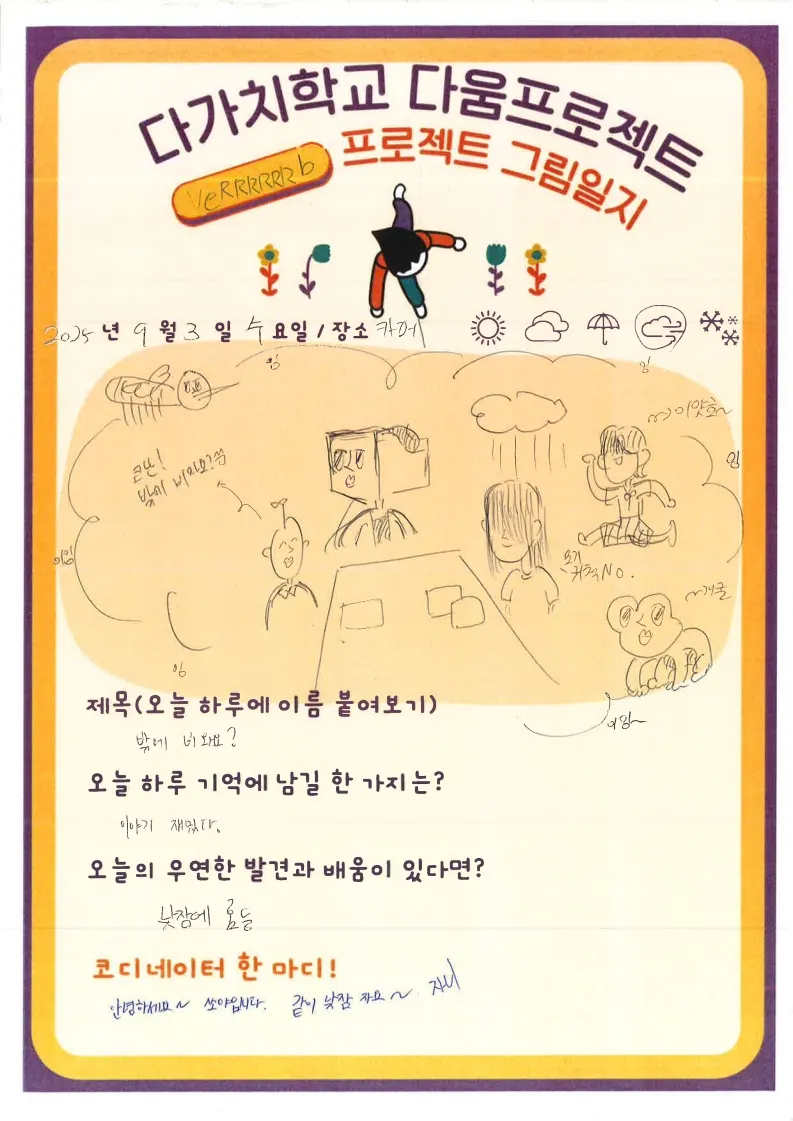 다가치학교 다움프로젝트
프로젝트 그림일지
VeRRRRRRb
2025년 9월 3일 수요일 / 장소 카페
잉
잉
~이얏호~
잉
밖에 비와요?
잉
요기
귀척 NO.
~개굴
잉
제목(오늘 하루에 이름 붙여보기)
밖에 비 와요?
오늘 하루 기억에 남길 한 가지는?
이야기 재밌다.
오늘의 우연한 발견과 배움이 있다면?
낮잠에
코디네이터 한 마디!
안녕하세요~ 쏘야입니다. 같이 낮잠 자요~